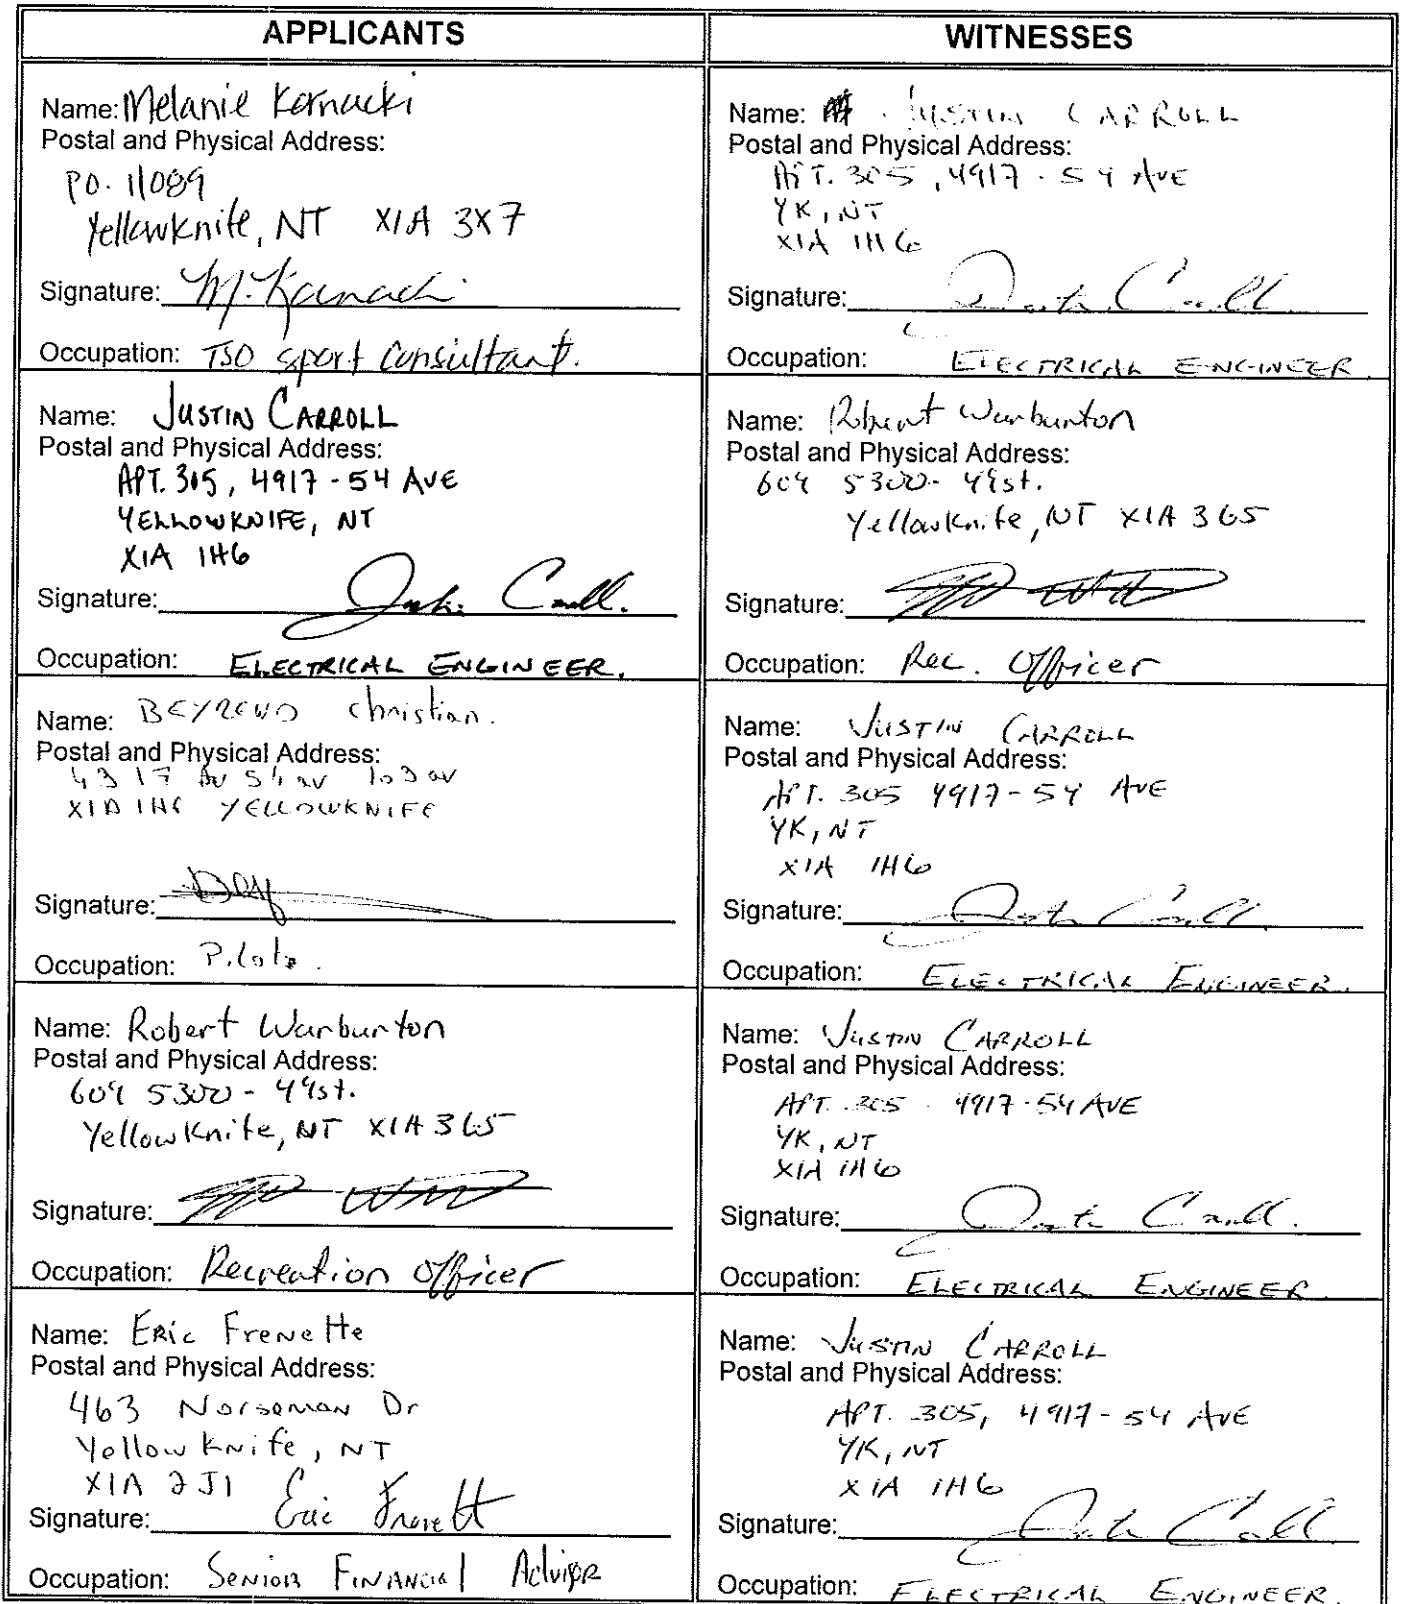 APPLICANTS
WITNESSES
Name: Melanie Kornacki
Postal and Physical Address:
P.O. 11089
Yellowknife, NT X1A 3X7
Signature: M. Kornacki
Occupation: TSO sport consultant.
Name: JUSTIN CARROLL
Postal and Physical Address:
APT. 305, 4917-54 AVE
YK, NT
X1A 1H6
Signature:
Occupation: ELECTRICAL ENGINEER.
Name: JUSTIN CARROLL
Postal and Physical Address:
APT. 305, 4917-54 AVE
YELLOWKNIFE, NT
X1A 1H6
Signature:
Occupation: ELECTRICAL ENGINEER.
Name: Robert Warburton
Postal and Physical Address:
5300-49st.
Yellowknife, NT X1A 3G5
Signature:
Occupation: Rec. Officer
Name: Christian.
Postal and Physical Address:
X1A 1H6 YELLOWKNIFE
Signature:
Occupation:
Name: JUSTIN CARROLL
Postal and Physical Address:
APT. 305 4917-54 AVE
YK, NT
X1A 1H6
Signature:
Occupation: ELECTRICAL ENGINEER.
Name: Robert Warburton
Postal and Physical Address:
5300-49st.
Yellowknife, NT X1A 3G5
Signature:
Occupation: Recreation Officer
Name: JUSTIN CARROLL
Postal and Physical Address:
APT. 305 4917-54 AVE
YK, NT
X1A 1H6
Signature:
Occupation: ELECTRICAL ENGINEER.
Name: Eric Frenette
Postal and Physical Address:
463 Norseman Dr
Yellowknife, NT
X1A 2J1
Signature: Eric Frenette
Occupation: Senior Financial Advisor
Name: JUSTIN CARROLL
Postal and Physical Address:
APT. 305, 4917-54 AVE
YK, NT
X1A 1H6
Signature:
Occupation: ELECTRICAL ENGINEER.